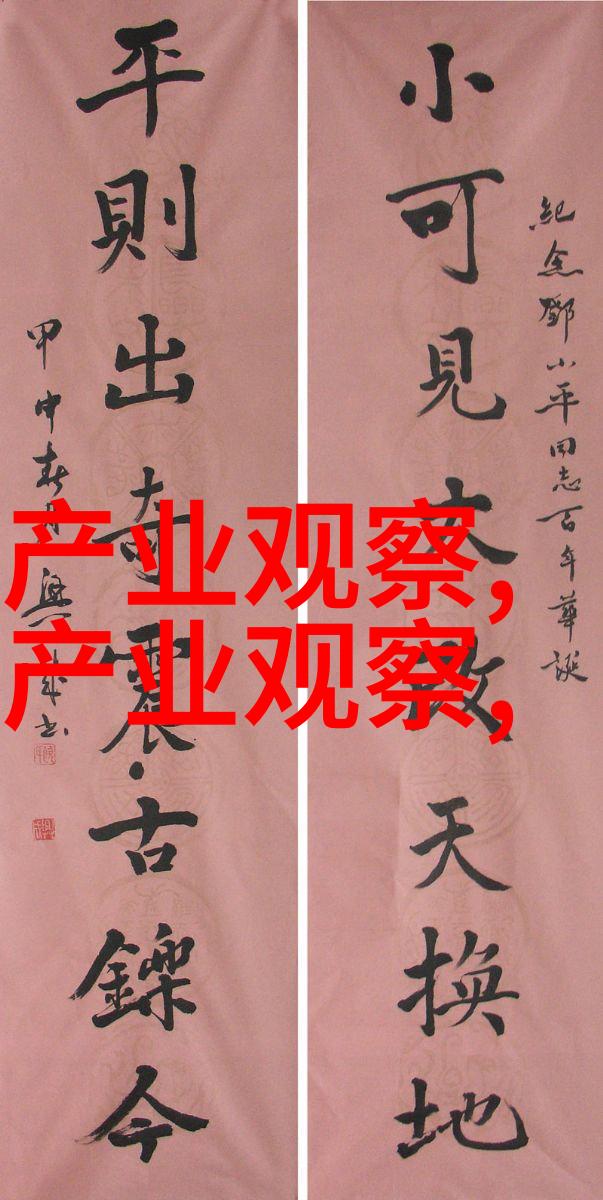 紀念鄧小平同志百年華誕
小可見大改天換地
平則出奇震古鑠今
甲申春月
产业观察,
产业观察,